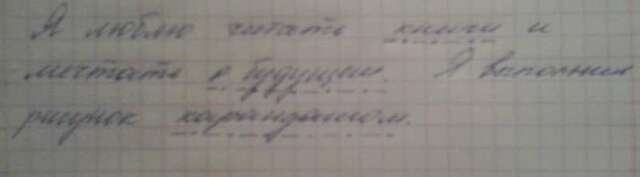 Я люблю читать книги и
мечтать о будущем. Я выполнил
рисунок карандашом.